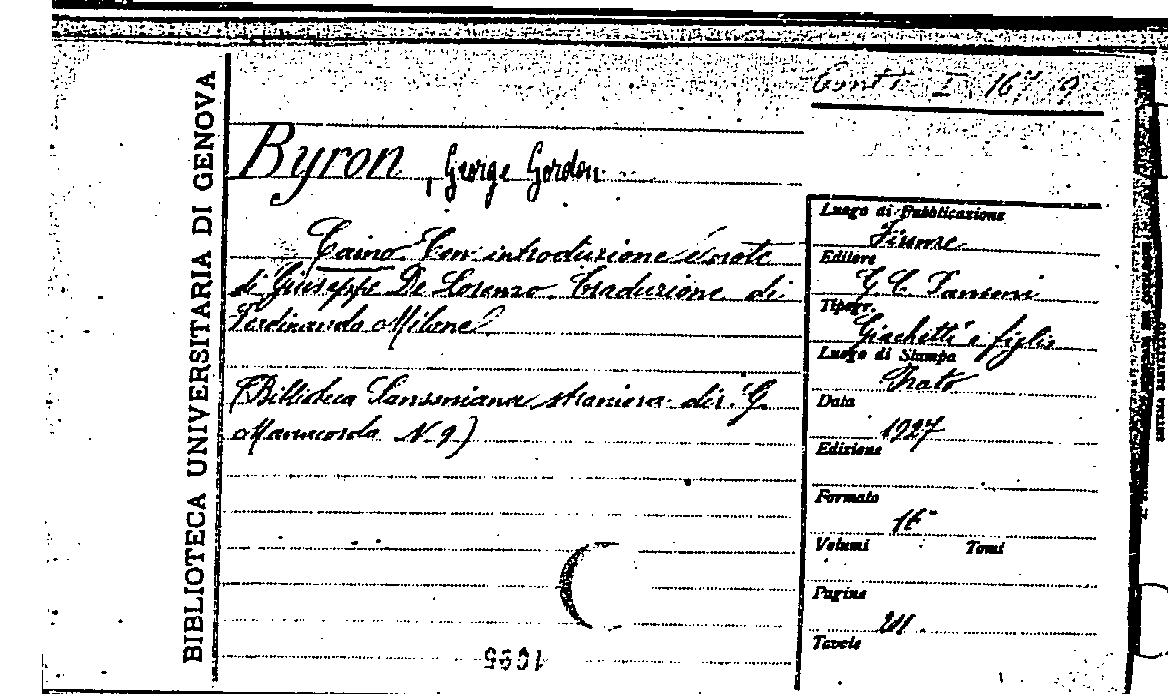 BIBLIOTECA UNIVERSITARIA DI GENOVA
Cont. I. 167 9
Byron, George Gordon
Caino. Con introduzione e note
di Giuseppe De Lorenzo. Traduzione di
Ferdinando Milone
(Biblioteca Sansoniana straniera dir. G.
Manacorda N. 9)
Luogo di Pubblicazione
Firenze
Editore
G. C. Sansoni
Tipogr.
Giachetti e figlio
Luogo di Stampa
Prato
Data
1927
Edizione
Formato
16°
Volumi Tomi
Pagine
Tavole
1095